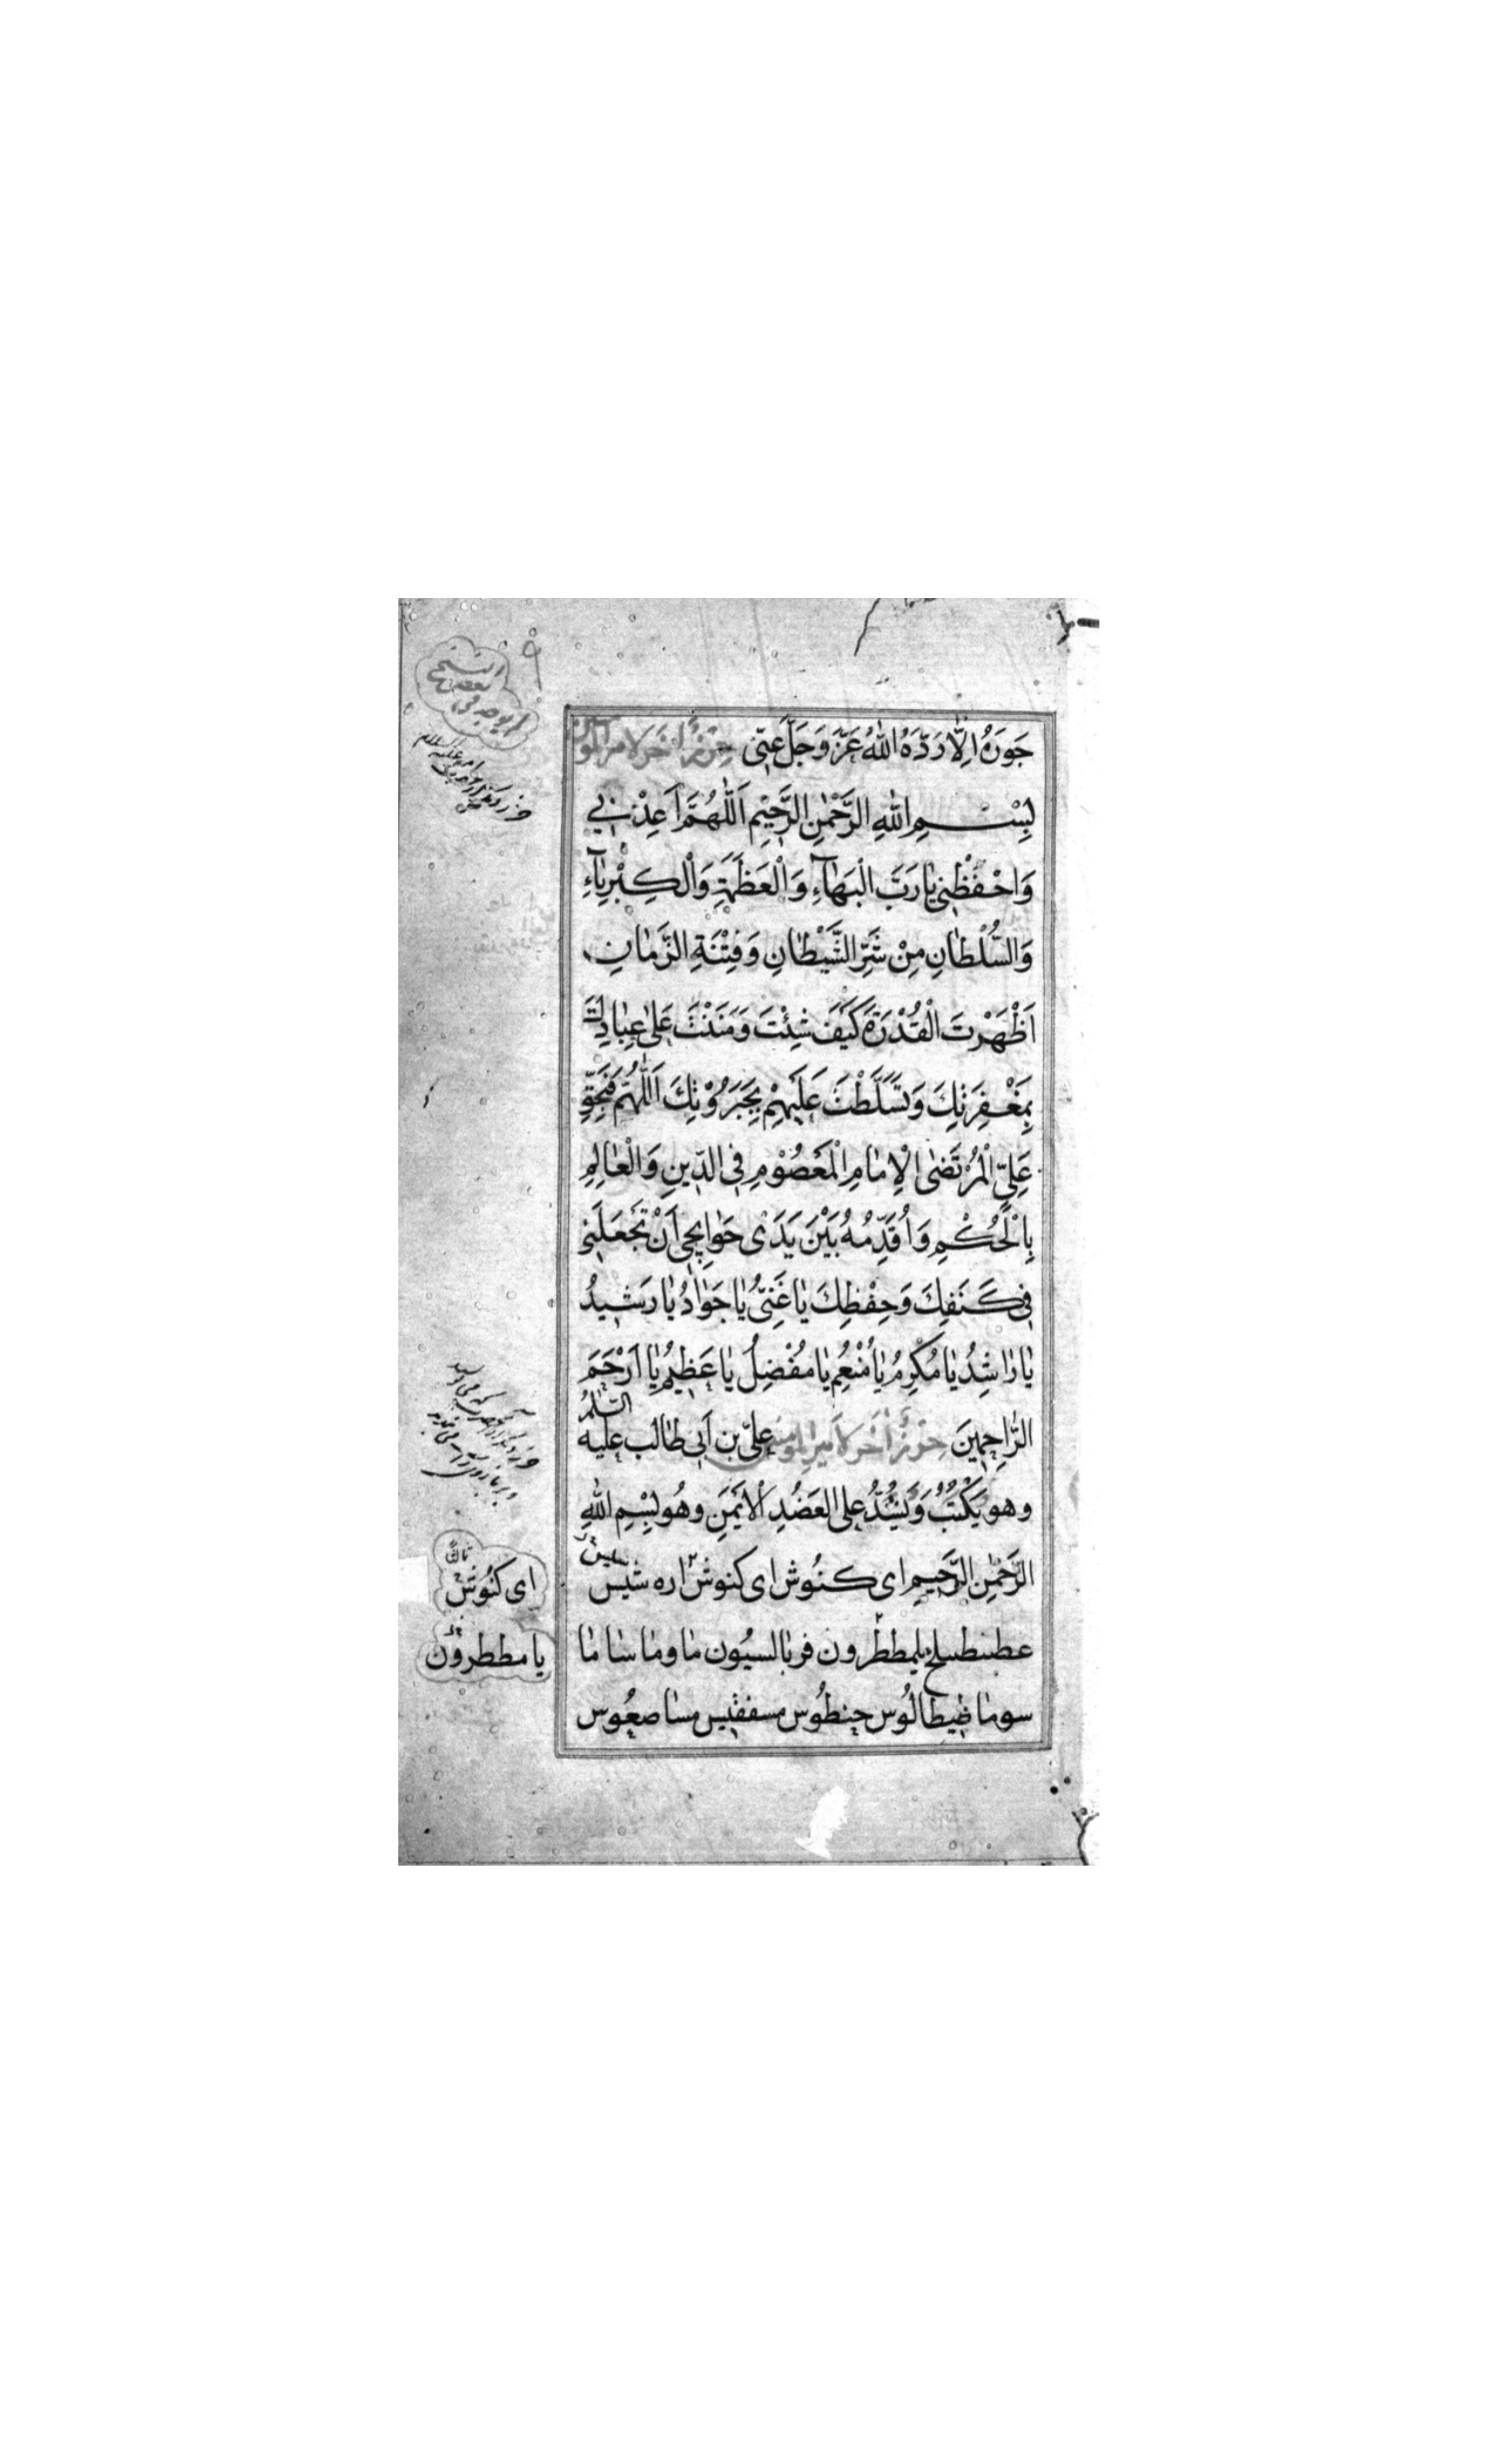 جَوَنَهُ اِلَّا رَدَّهُ اللهُ عَزَّ وَجَلَّ عَنّي حِرْزٌ اٰخَر لامير المومنين
بِسْمِ اللهِ الرَّحْمٰنِ الرَّحِيْمِ اَللّٰهُمَّ اَعِذْنِي
وَاحْفَظْنِي يٰا رَبَّ الْبَهٰٓاءِ وَالْعَظَمَةِ وَالْكِبْرِيٰٓاءِ
وَالسُّلْطٰانِ مِنْ شَرِّ الشَّيْطٰانِ وَفِتْنَةِ الزَّمٰانِ
اَظْهَرْتَ الْقُدْرَةَ كَيْفَ شِئْتَ وَمَنَنْتَ عَلٰى عِبٰادِكَ
بِمَغْفِرَتِكَ وَتَسَلَّطْتَ عَلَيْهِمْ بِجَبَرُوْتِكَ اَللّٰهُمَّ فَبِحَقِّ
عَلِيٍّ الْمُرْتَضٰى الْاِمٰامِ الْمَعْصُوْمِ فِي الدّينِ وَالْعٰالِمِ
بِالْحُكْمِ وَاُقَدِّمُهُ بَيْنَ يَدَىْ حَوٰايِجي اَنْ تَجْعَلَنِي
فِي كَنَفِكَ وَحِفْظِكَ يٰا غَنِيُّ يٰا جَوٰادُ يٰا رَشيدُ
يٰا رٰاشِدُ يٰا مُكْرِمُ يٰا مُنْعِمُ يٰا مُفْضِلُ يٰا عَظِيْمُ يٰا اَرْحَمَ
الرّٰاحِمِينَ حِرْزٌ اٰخَر لاَميرِ المومنين عَليّ بن اَبي طٰالب عليه السَّلٰمُ
وهو يَكْتُبُ وَيَشُدُّ على العَضُدِ الْاَيْمَنِ وهُو بِسْمِ اللهِ
الرَّحْمٰنِ الرَّحيمِ اى كنُوش اى كنوش اره شيس
عطبنطسلخ يا مططرون فريٰالسيُون مٰا ومٰا سٰا مٰا
سومٰا طيطٰالُوس حنطُوس مسفقيس مسٰا صعُوس
اى كنُوش
يا مططرون